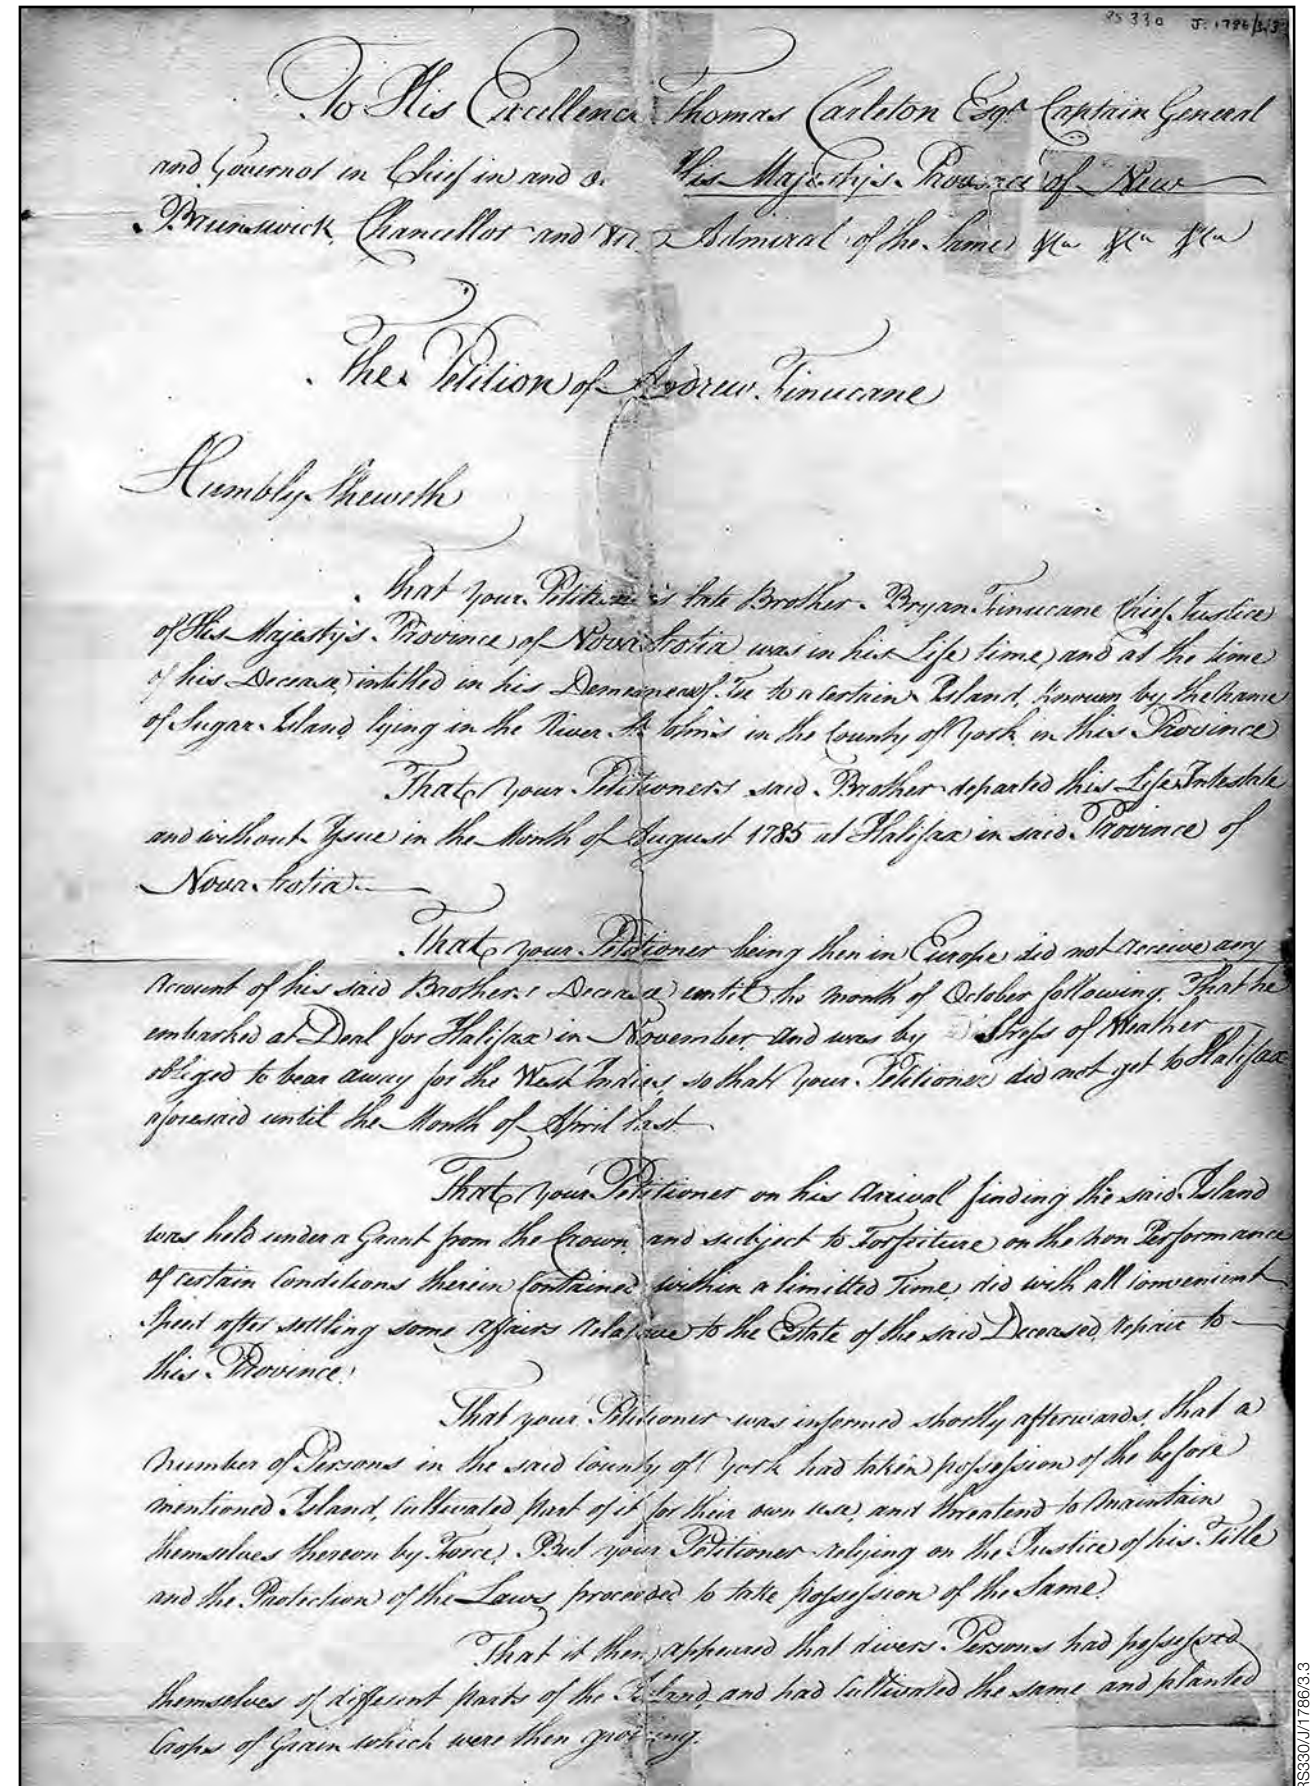 RS 330 J: 1786/3.3
To His Excellenc Thomas Carleton Esqr Captain General
and Governor in Chief in and o. His Majesty's Province of New
Brunswick, Chancellor and Admiral of the Same &ca &ca &ca
The Petition of Andrew Finucane
Humbly Sheweth
That your Petitioner's late Brother Bryan Finucane Chief Justice
of His Majesty's Province of Nova Scotia was in his Life time and at the time
of his Decease intitled in his Demesne as of Fee to a certain Island, known by the Name
of Sugar Island lying in the River St. John's in the County of York in this Province
That your Petitioners said Brother departed this Life Intestate
and without Issue in the Month of August 1785 at Halifax in said Province of
Nova Scotia
That your Petitioner being then in Europe did not receive any
Account of his said Brothers Decease until the month of October following. That he
embarked at Deal for Halifax in November and was by Stress of Weather
obliged to bear away for the West Indies, so that your Petitioner did not get to Halifax
aforesaid until the Month of April last
That your Petitioner on his Arrival finding the said Island
was held under a Grant from the Crown, and subject to Forfeiture on the Non Performance
of certain Conditions therein Contained within a limitted Time, did with all convenient
Speed after settling some affairs relative to the Estate of the said Deceased, repair to
this Province.
That your Petitioner was informed shortly afterwards, that a
Number of Persons in the said County of York had taken possession of the before
mentioned Island, Cultivated part of it for their own use, and threatend to Maintain
themselves thereon by Force. But your Petitioner relying on the Justice of his Title
and the Protection of the Laws, proceeded to take possession of the Same.
That it then appeared that divers Persons had possessed
themselves of different parts of the Island, and had Cultivated the same and planted
Crops of Grain which were then growing.
RS330/J/1786/3.3